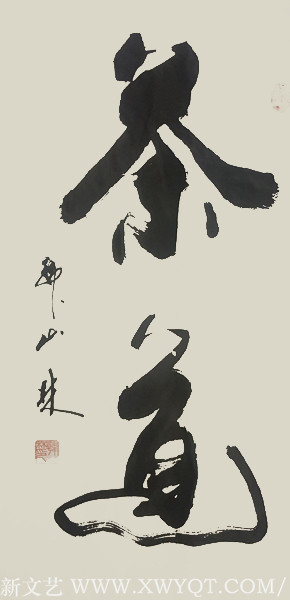 茶道
新文艺 WWW.XWYQT.COM/